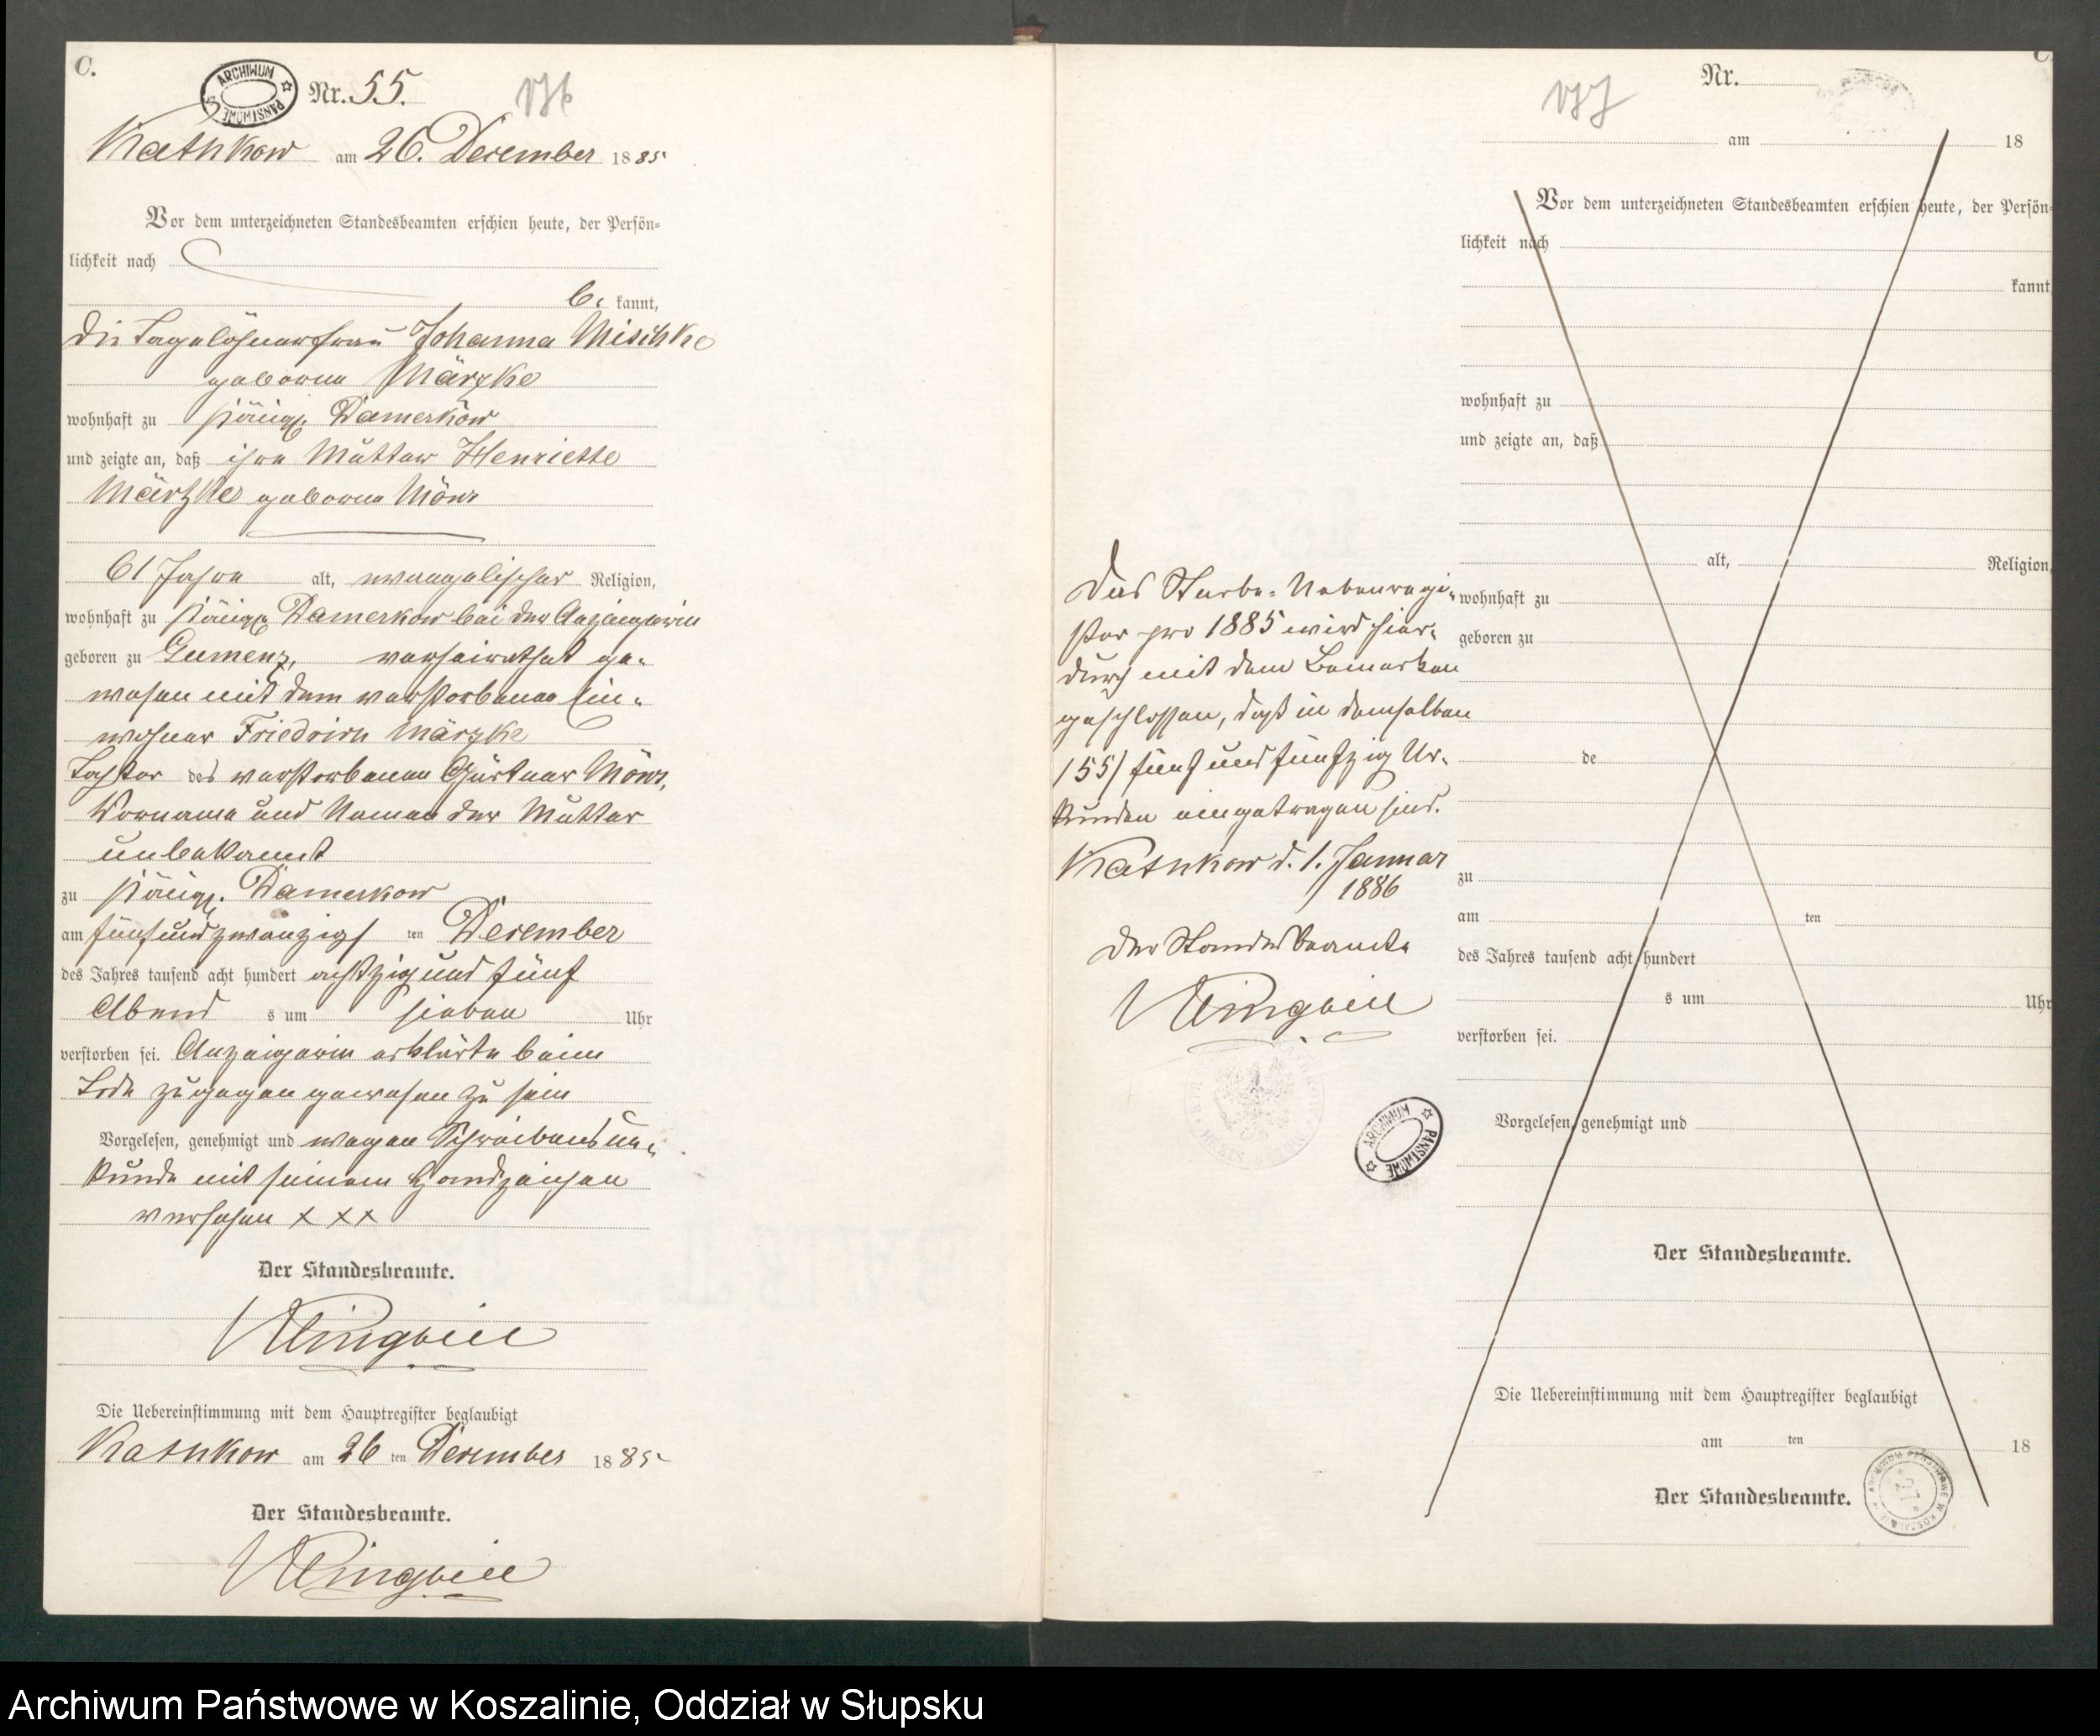 C.
ARCHIWUM PAŃSTWOWE
Nr. 55.
Kathkow am 26. December 1885
Vor dem unterzeichneten Standesbeamten erschien heute, der Persön-
lichkeit nach
be kannt,
die Tagelöhnerfrau Johanna Mischke
geborne Märzke
wohnhaft zu Damerkow
und zeigte an, daß ihre Mutter Henriette
Märtzke geborne
61 Jahre alt, evangelischer Religion,
wohnhaft zu Damerkow bei der Anzeigerin
geboren zu Gumenz, verheirathet ge-
wesen mit dem verstorbenen Ein-
wohner Friedrich Märzke
Tochter des verstorbenen Gärtner
Vorname und Namen der Mutter
unbekannt
zu Damerkow
am fünfundzwanzigs ten December
des Jahres tausend acht hundert achtzig und fünf
Abend s um sieben Uhr
verstorben sei. Anzeigerin erklärte beim
Tode zugegen gewesen zu sein
Vorgelesen, genehmigt und wegen Schreibensun-
kunde mit seinem Handzeichen
versehen x x x
Der Standesbeamte.
Die Uebereinstimmung mit dem Hauptregister beglaubigt
Kathkow am 26 ten December 1885
Der Standesbeamte.
Nr.
am 18
Vor dem unterzeichneten Standesbeamten erschien heute, der Persön-
lichkeit nach
kannt
wohnhaft zu
und zeigte an, daß
alt, Religion,
wohnhaft zu
geboren zu
de
zu
am ten
des Jahres tausend acht hundert
s um Uhr
verstorben sei.
Vorgelesen, genehmigt und
Der Standesbeamte.
Die Uebereinstimmung mit dem Hauptregister beglaubigt
am ten 18
Der Standesbeamte.
Das Sterbe-Nebenregi-
ster pro 1885 wird hier-
durch mit dem Bemerken
geschlossen, daß in demselben
/55/ fünf und fünfzig Ur-
kunden eingetragen sind.
Kathkow d. 1. Januar
1886
Der Standesbeamte
ARCHIWUM PAŃSTWOWE
Archiwum Państwowe w Koszalinie, Oddział w Słupsku